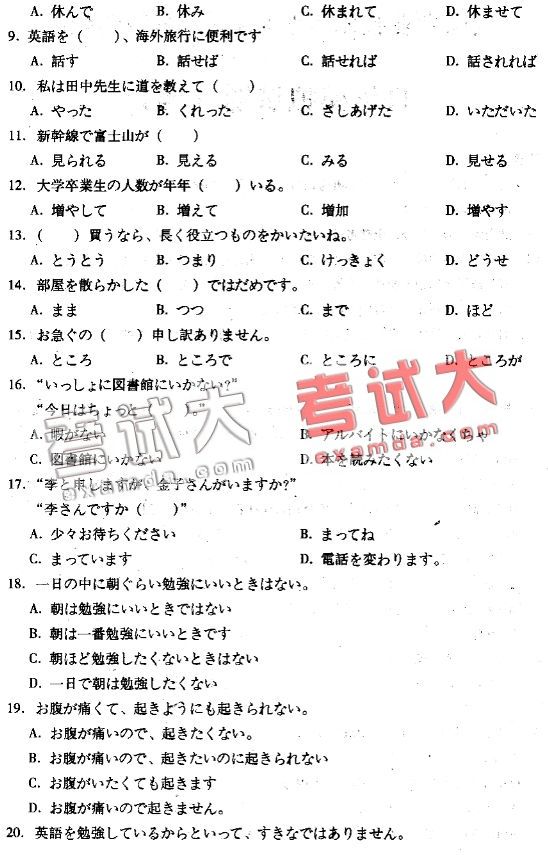 A. 休んで B. 休み C. 休まれて D. 休ませて
9. 英語を（　　）、海外旅行に便利です
A. 話す B. 話せば C. 話せれば D. 話されれば
10. 私は田中先生に道を教えて（　　）
A. やった B. くれった C. さしあげた D. いただいた
11. 新幹線で富士山が（　　）
A. 見られる B. 見える C. みる D. 見せる
12. 大学卒業生の人数が年年（　　）いる。
A. 増やして B. 増えて C. 増加 D. 増やす
13.（　　）買うなら、長く役立つものをかいたいね。
A. とうとう B. つまり C. けっきょく D. どうせ
14. 部屋を散らかした（　　）ではだめです。
A. まま B. つつ C. まで D. ほど
15. お急ぐの（　　）申し訳ありません。
A. ところ B. ところで C. ところに D. ところが
16. “いっしょに図書館にいかない?”
“今日はちょっと（　　）。”
A. 暇がない B. アルバイトにいかなくちゃ
C. 図書館にいかない D. 本を読みたくない
17. “李と申しますが、金子さんがいますか?”
“李さんですか（　　）”
A. 少々お待ちください B. まってね
C. まっています D. 電話を変わります。
18. 一日の中に朝ぐらい勉強にいいときはない。
A. 朝は勉強にいいときではない
B. 朝は一番勉強にいいときです
C. 朝ほど勉強したくないときはない
D. 一日で朝は勉強したくない
19. お腹が痛くて、起きようにも起きられない。
A. お腹が痛いので、起きたくない。
B. お腹が痛いので、起きたいのに起きられない
C. お腹がいたくても起きます
D. お腹が痛いので起きません。
20. 英語を勉強しているからといって、すきなではありません。
考试大
examda.com
考试大
examda.com